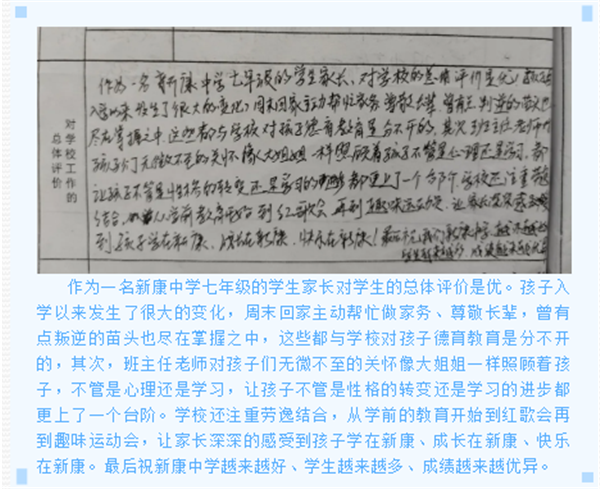 对学校工作的
总体评价
作为一名新康中学七年级的学生家长，对学校的总体评价是优！孩子
入学以来发生了很大的变化，周末回家主动帮忙家务 尊敬长辈 曾有点判逆的苗头也
尽在掌握之中。这些都与学校对孩子德育教育是分不开的。其次 班主任老师对
孩子们无微不至的关怀像大姐姐一样照顾着孩子不管是心理还是学习。都
让孩子不管是性格的转变还是学习的 都更上了一个台阶。学校还注重劳逸
结合。从学前教育 到红歌会 再到趣味运动会。让家长深深感受
到孩子学在新康、成长在新康、快乐在新康！最后祝 新康中学越来越好
学生越来越多、成绩越来越优异
作为一名新康中学七年级的学生家长对学生的总体评价是优。孩子入
学以来发生了很大的变化，周末回家主动帮忙做家务、尊敬长辈，曾有
点叛逆的苗头也尽在掌握之中，这些都与学校对孩子德育教育是分不开
的，其次，班主任老师对孩子们无微不至的关怀像大姐姐一样照顾着孩
子，不管是心理还是学习，让孩子不管是性格的转变还是学习的进步都
更上了一个台阶。学校还注重劳逸结合，从学前的教育开始到红歌会再
到趣味运动会，让家长深深的感受到孩子学在新康、成长在新康、快乐
在新康。最后祝新康中学越来越好、学生越来越多、成绩越来越优异。